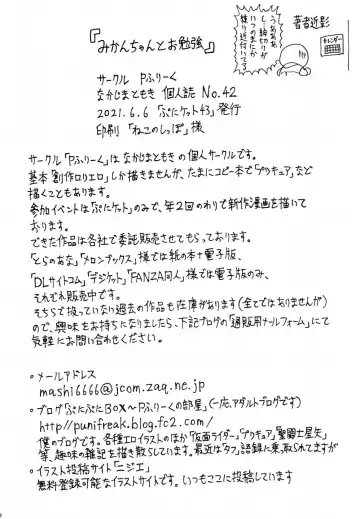 『みかんちゃんとお勉強』
うああああ
し…締切りが
いつのまにか
繰り返付いてる
著者近影
カレンダー
サークル Pふりーく
なかじまともき 個人誌 No.42
2021.6.6 「ぷにケット43」発行
印刷 「ねこのしっぽ」様
サークル「Pふりーく」はなかじまともきの個人サークルです。
基本「創作ロリエロ」しか描きませんが、たまにコピー本で「プリキュア」など
描くこともあります。
参加イベントは「ぷにケット」のみで、年2回のわりで新作漫画を描いて
おります。
できた作品は各社で委託販売させてもらっております。
「とらのあな」「メロンブックス」様では紙の本+電子版、
「DLサイトコム」「デジケット」「FANZA同人」様では電子版のみ、
それぞれ販売中です。
そちらで扱っていない過去の作品も在庫があります(全てではありませんが)
ので、興味をお持ちになりましたら、下記ブログの「通販用メールフォーム」にて
気軽にお問い合わせください。
○メールアドレス
mashi6666@jcom.zaq.ne.jp
○ブログ「ぷにぷにBOX～Pふりーくの部屋」(一応、アダルトブログです)
http//punifreak.blog.fc2.com/
僕のブログです。各種エロイラストのほか「仮面ライダー」「プリキュア」「聖闘士星矢」
等、趣味の雑記を描き散らしています。最近は「タフ」語録に乗っ取られてますが
○イラスト投稿サイト「ニジエ」
無料登録可能なイラストサイトです。いつもここに投稿しています